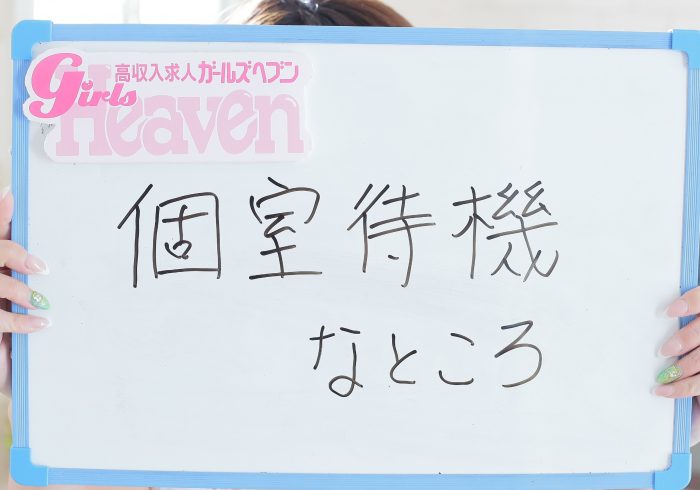 高収入求人ガールズヘブン
Girls
Heaven
個室待機
なところ